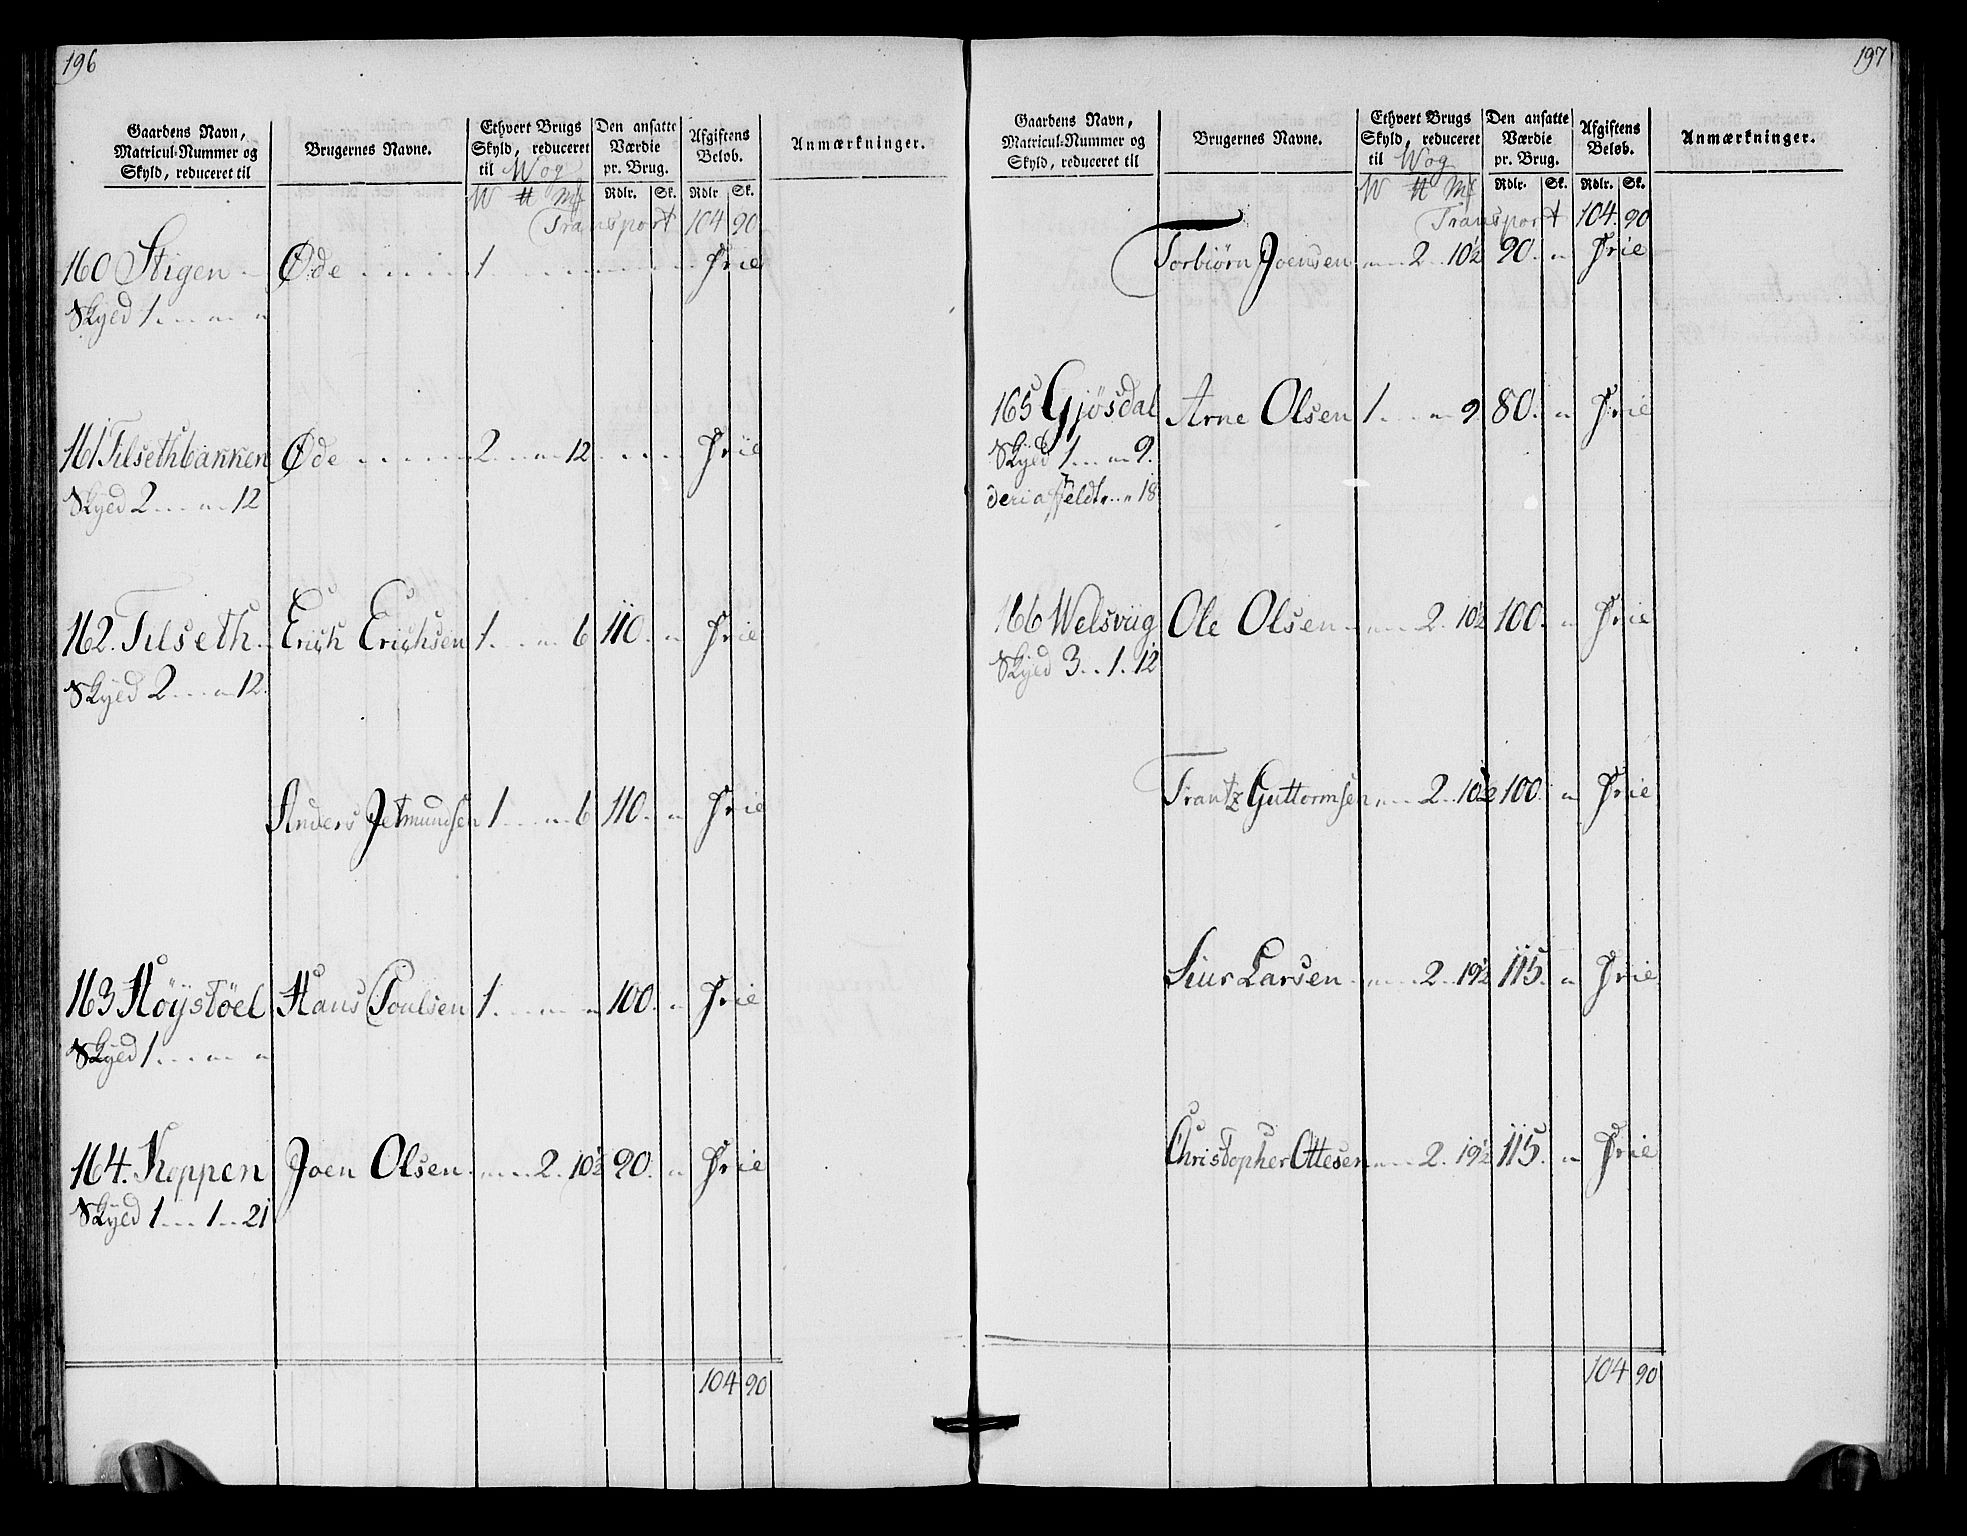 196
Gaardens Navn, Matricul-Nummer og Skyld, reduceret til
Brugernes Navne.
Ethvert Brugs Skyld, reduceret til Wog
W ℔ Mk
Den ansatte Værdie pr. Brug.
Rdlr. Sk.
Afgiftens Beløb.
Rdlr Sk.
Anmærkninger.
Transport 104 90
160 Stigen Øde 1 Frie
Skyld 1 . . . „ . . „
161 Tilsethbakken Øde 2 . . „ . . 12 Frie
Skyld 2 . . . „ . . 12
162. Tilseth Erich Erichsen 1 . . . „ . . 6 110. „ Frie
Skyld 2 . . . „ . . 12.
Anders Jetmundsen 1 . . . „ . . 6 110. „ Frie
163 Høystøel Hans Poulsen 1 . . . „ . . „ 100. „ Frie
Skyld 1 . . . „ . . „
164. Koppen Joen Olsen „ . . . 2 . 10½ 90. „ Frie
Skyld 1 . . . 1 . . 21
104 90
197
Gaardens Navn, Matricul-Nummer og Skyld, reduceret til
Brugernes Navne.
Ethvert Brugs Skyld, reduceret til Wog
W ℔ Mk
Den ansatte Værdie pr. Brug.
Rdlr. Sk.
Afgiftens Beløb.
Rdlr. Sk.
Anmærkninger.
Transport 104. 90
Torbiørn Joensen „ . . . 2 . . 10½ 90. „ Frie
165 Gjösdal Arne Olsen 1 . . . „ 9 80. „ Frie
Skyld 1 . . . „ 9.
deri affeldt „ . . „ 18
166 Welsviig Ole Olsen „ . . . 2. 10½ 100. „ Frie
Skyld 3 . . 1 . 12
Frantz Guttormsen „ . . . 2 . . 10½ 100. „ Frie
Siur Larsen „ . . . 2 . . 19½ 115. „ Frie
Christopher Ottesen „ . . . 2 . 19½ 115. „ Frie
104 90